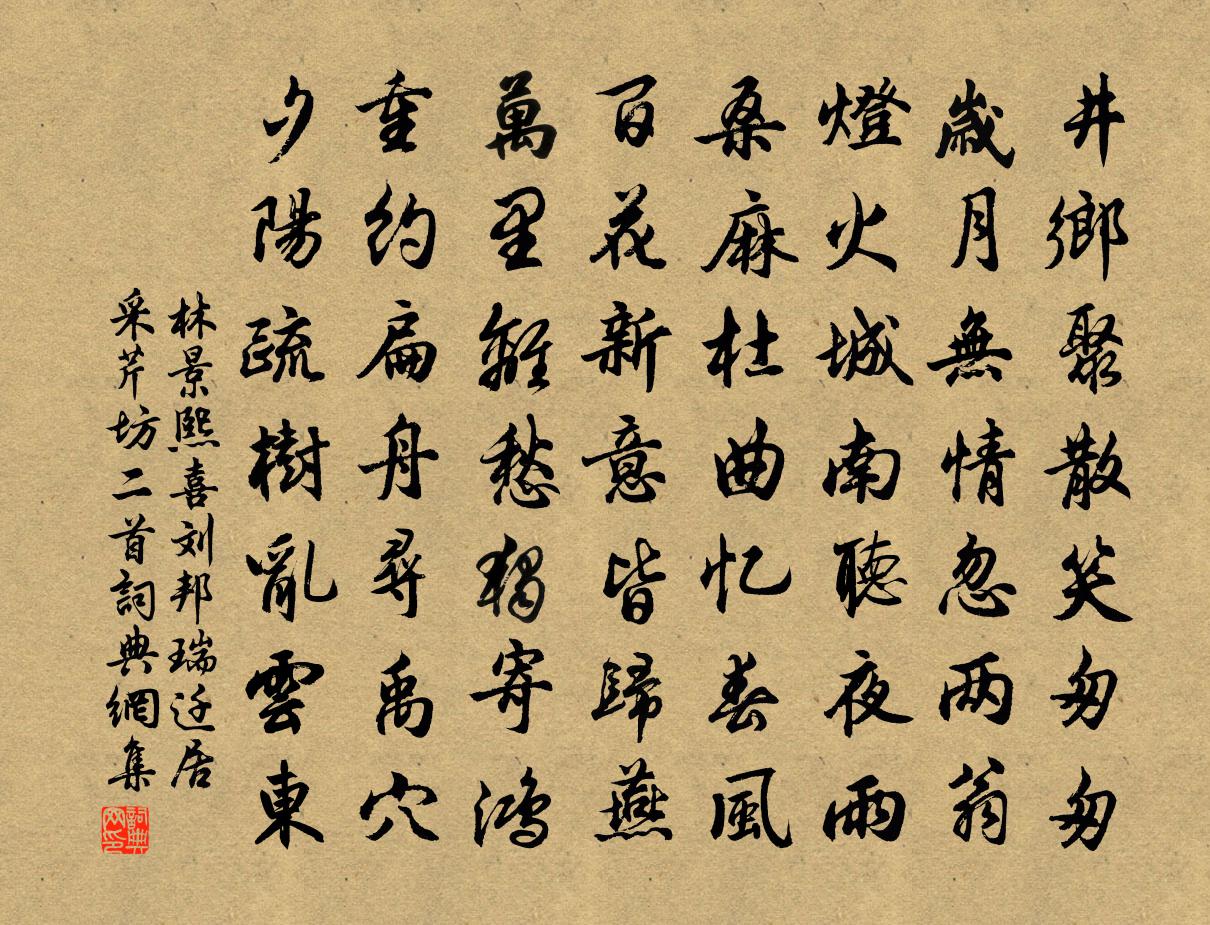 井鄉聚散笑匆匆
歲月無情忽两翁
燈火城南聽夜雨
桑麻杜曲忆春風
百花新意皆歸燕
萬里離愁獨寄鴻
重約扁舟尋禹穴
夕陽疏樹亂雲東
林景熙喜刘邦瑞迁居
采芹坊二首詞典網集
詞典網印